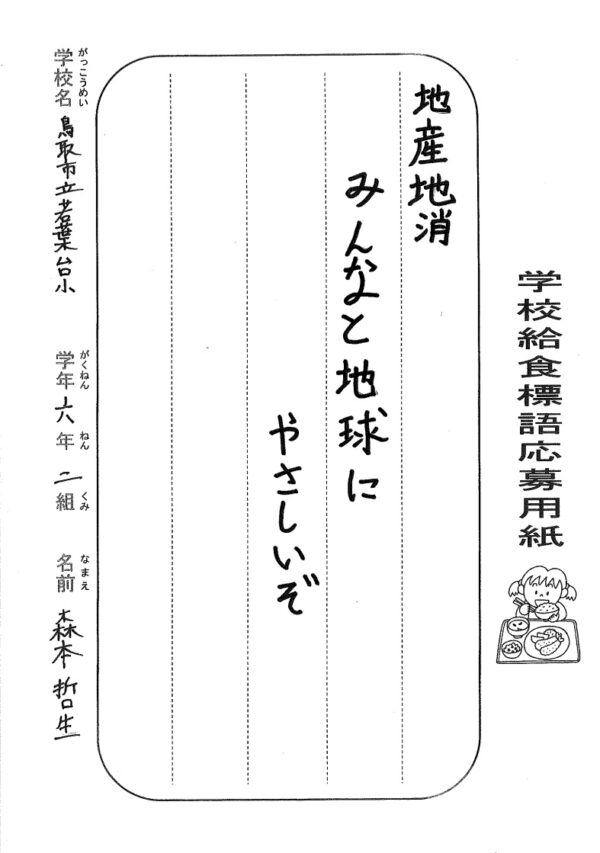 学校給食標語応募用紙
地産地消
みんなと地球に
やさしいぞ
がっこうめい
学校名 鳥取市立若葉台小
がくねん ねん くみ
学年 六年 二組
なまえ
名前 森本 哲生